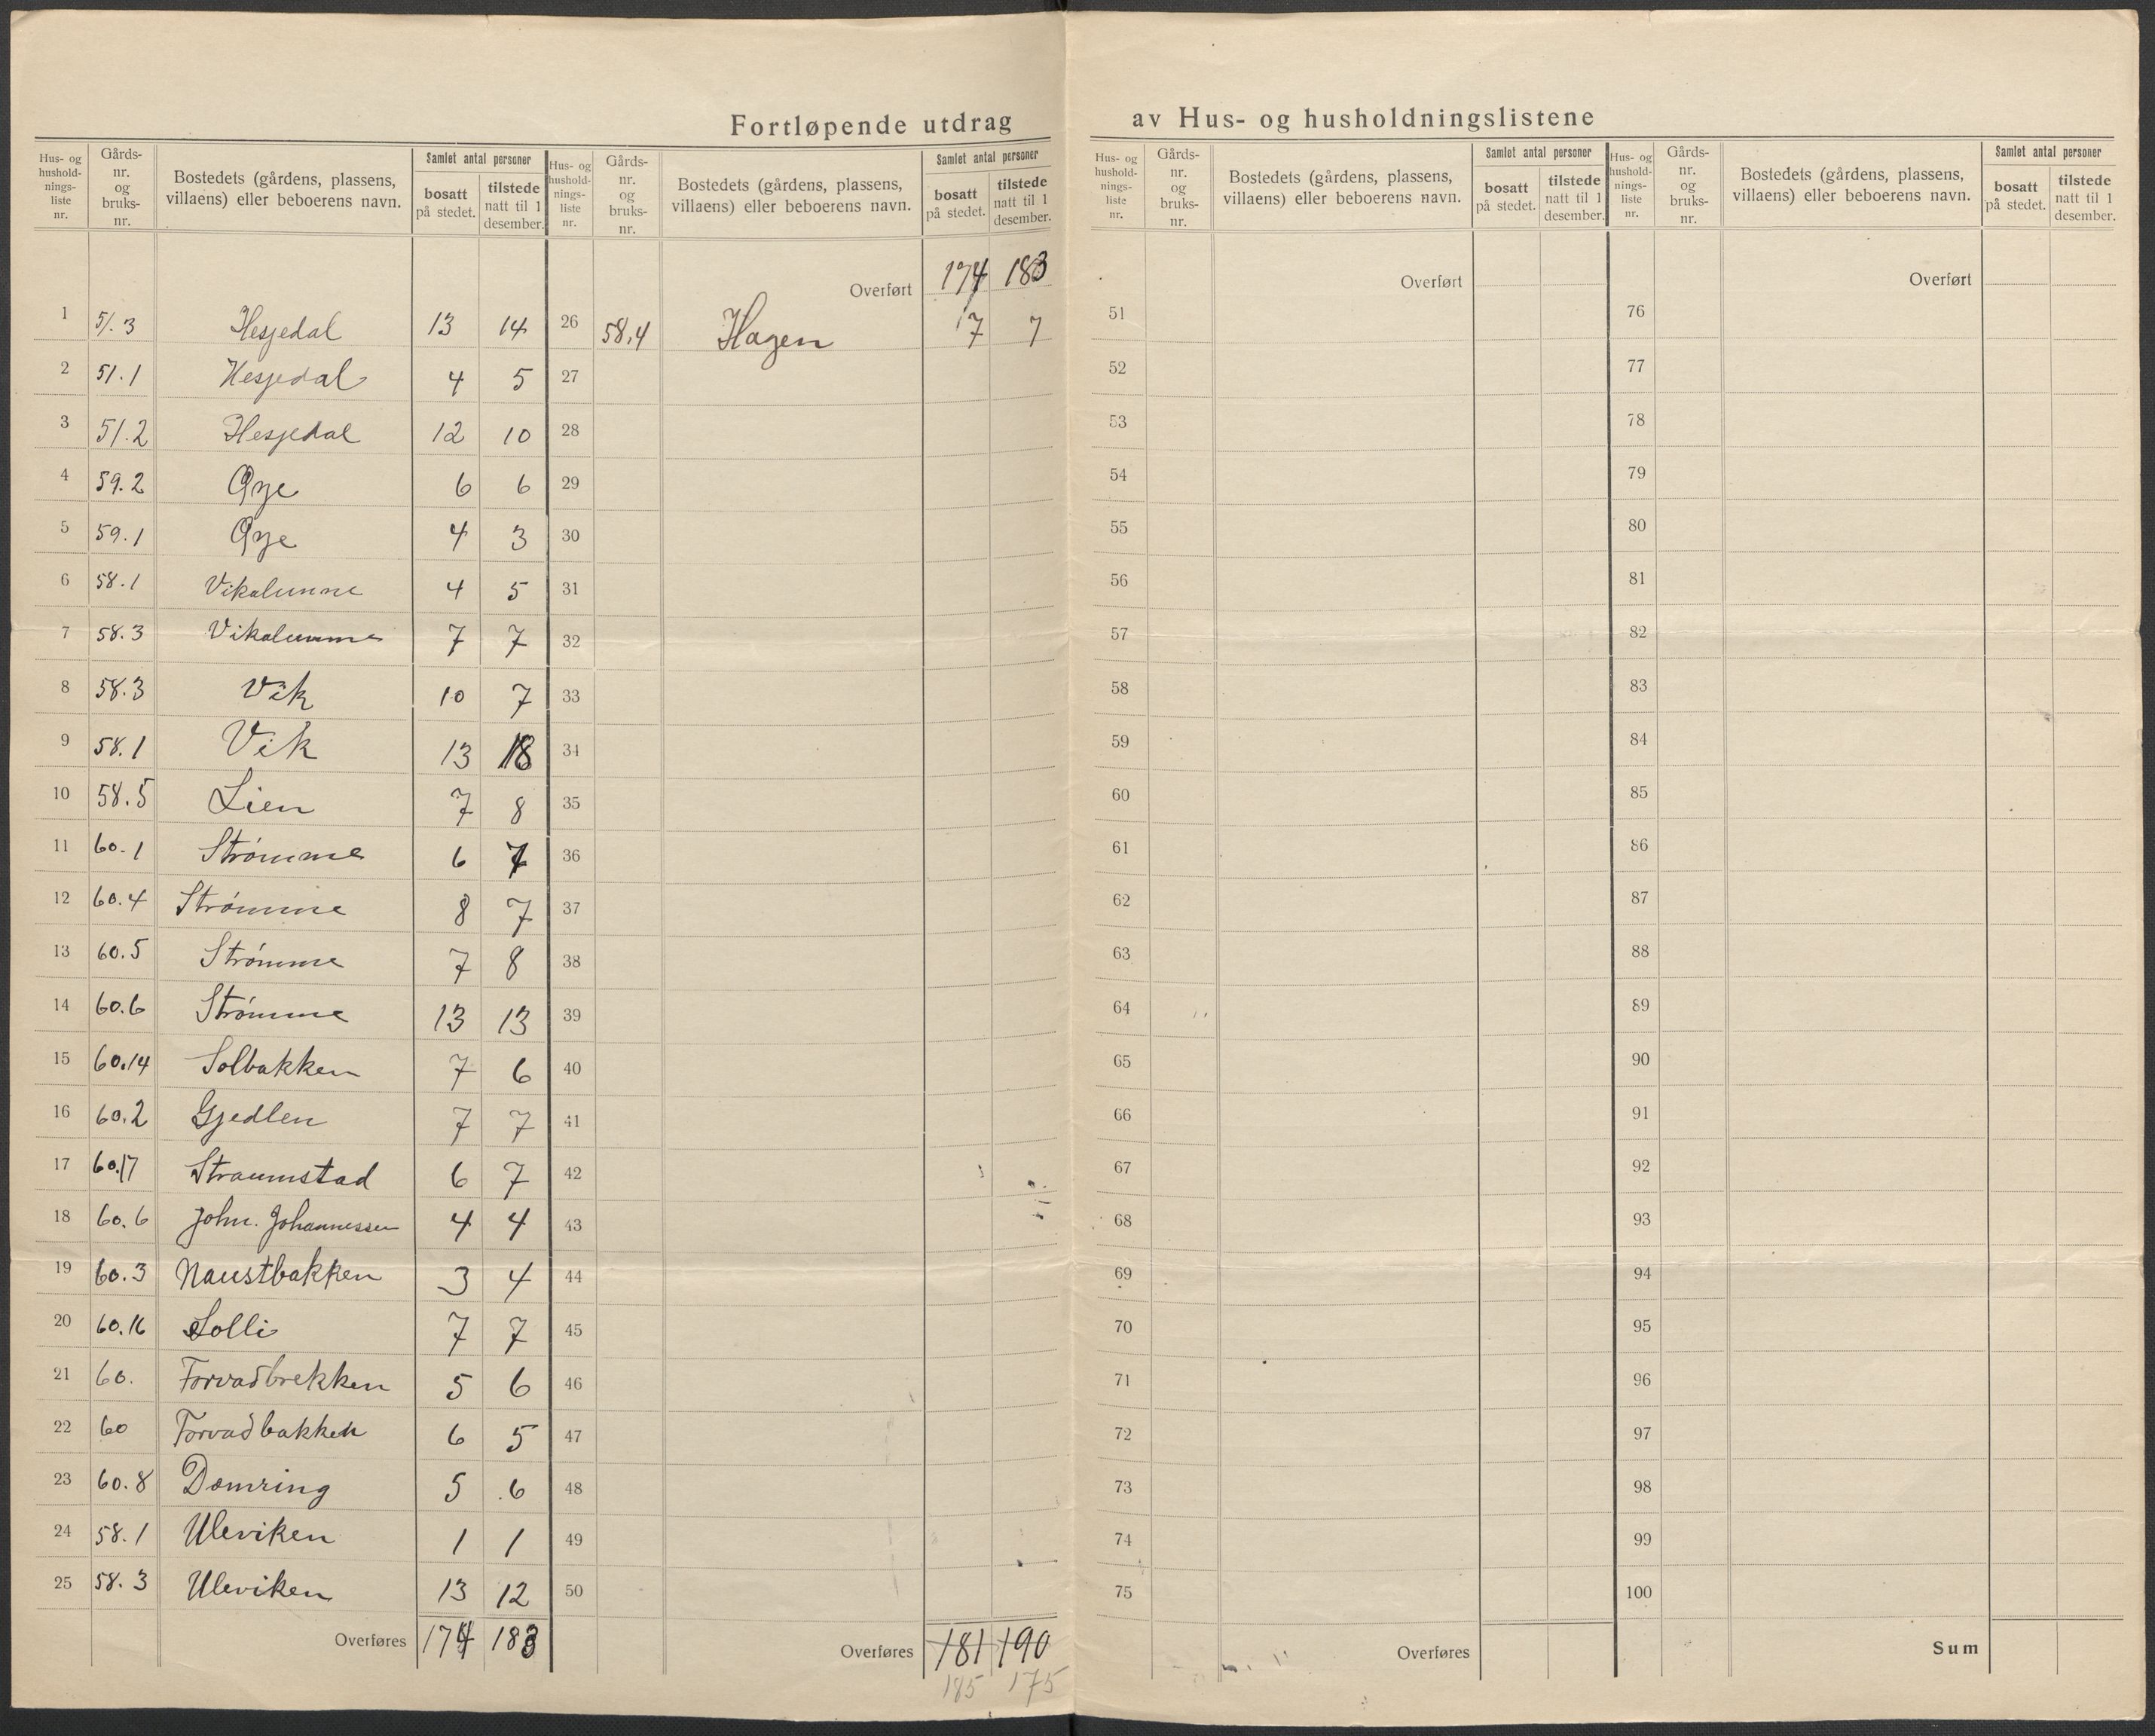 Fortløpende utdrag av Hus- og husholdningslistene
Hus- og hushold-nings-liste nr. | Gårds-nr. og bruks-nr. | Bostedets (gårdens, plassens, villaens) eller beboerens navn. | Samlet antal personer | bosatt på stedet. | tilstede natt til 1 desember.
1 51.3 Hesjedal 13 14
2 51.1 Hesjedal 4 5
3 51.2 Hesjedal 12 10
4 59.2 Øye 6 6
5 59.1 Øye 4 3
6 58.1 Vikalunne 4 5
7 58.3 Vikalunne 7 7
8 58.3 Vik 10 7
9 58.1 Vik 13 18
10 58.5 Lien 7 8
11 60.1 Strømme 6 7
12 60.4 Strømme 8 7
13 60.5 Strømme 7 8
14 60.6 Strømme 13 13
15 60.14 Solbakken 7 6
16 60.2 Gjedlen 7 7
17 60.17 Straumstad 6 7
18 60.6 John. Johannessen 4 4
19 60.3 Naustbakken 3 4
20 60.16 Solli 7 7
21 60. Forvadbrekken 5 6
22 60 Forvadbakken 6 5
23 60.8 Domring 5 6
24 58.1 Uleviken 1 1
25 58.3 Uleviken 13 12
Overføres 174 183
Hus- og hushold-nings-liste nr. | Gårds-nr. og bruks-nr. | Bostedets (gårdens, plassens, villaens) eller beboerens navn. | Samlet antal personer | bosatt på stedet. | tilstede natt til 1 desember.
Overført 174 183
26 58,4 Hagen 7 7
27
28
29
30
31
32
33
34
35
36
37
38
39
40
41
42
43
44
45
46
47
48
49
50
Overføres 181 190
185 175
Hus- og hushold-nings-liste nr. | Gårds-nr. og bruks-nr. | Bostedets (gårdens, plassens, villaens) eller beboerens navn. | Samlet antal personer | bosatt på stedet. | tilstede natt til 1 desember.
Overført
51
52
53
54
55
56
57
58
59
60
61
62
63
64
65
66
67
68
69
70
71
72
73
74
75
Overføres
Hus- og hushold-nings-liste nr. | Gårds-nr. og bruks-nr. | Bostedets (gårdens, plassens, villaens) eller beboerens navn. | Samlet antal personer | bosatt på stedet. | tilstede natt til 1 desember.
Overført
76
77
78
79
80
81
82
83
84
85
86
87
88
89
90
91
92
93
94
95
96
97
98
99
100
Sum